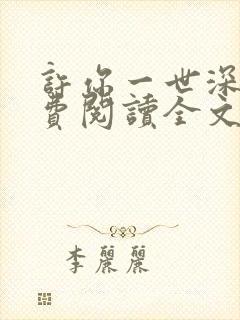 許你一世深
費閱讀全文
李麗麗